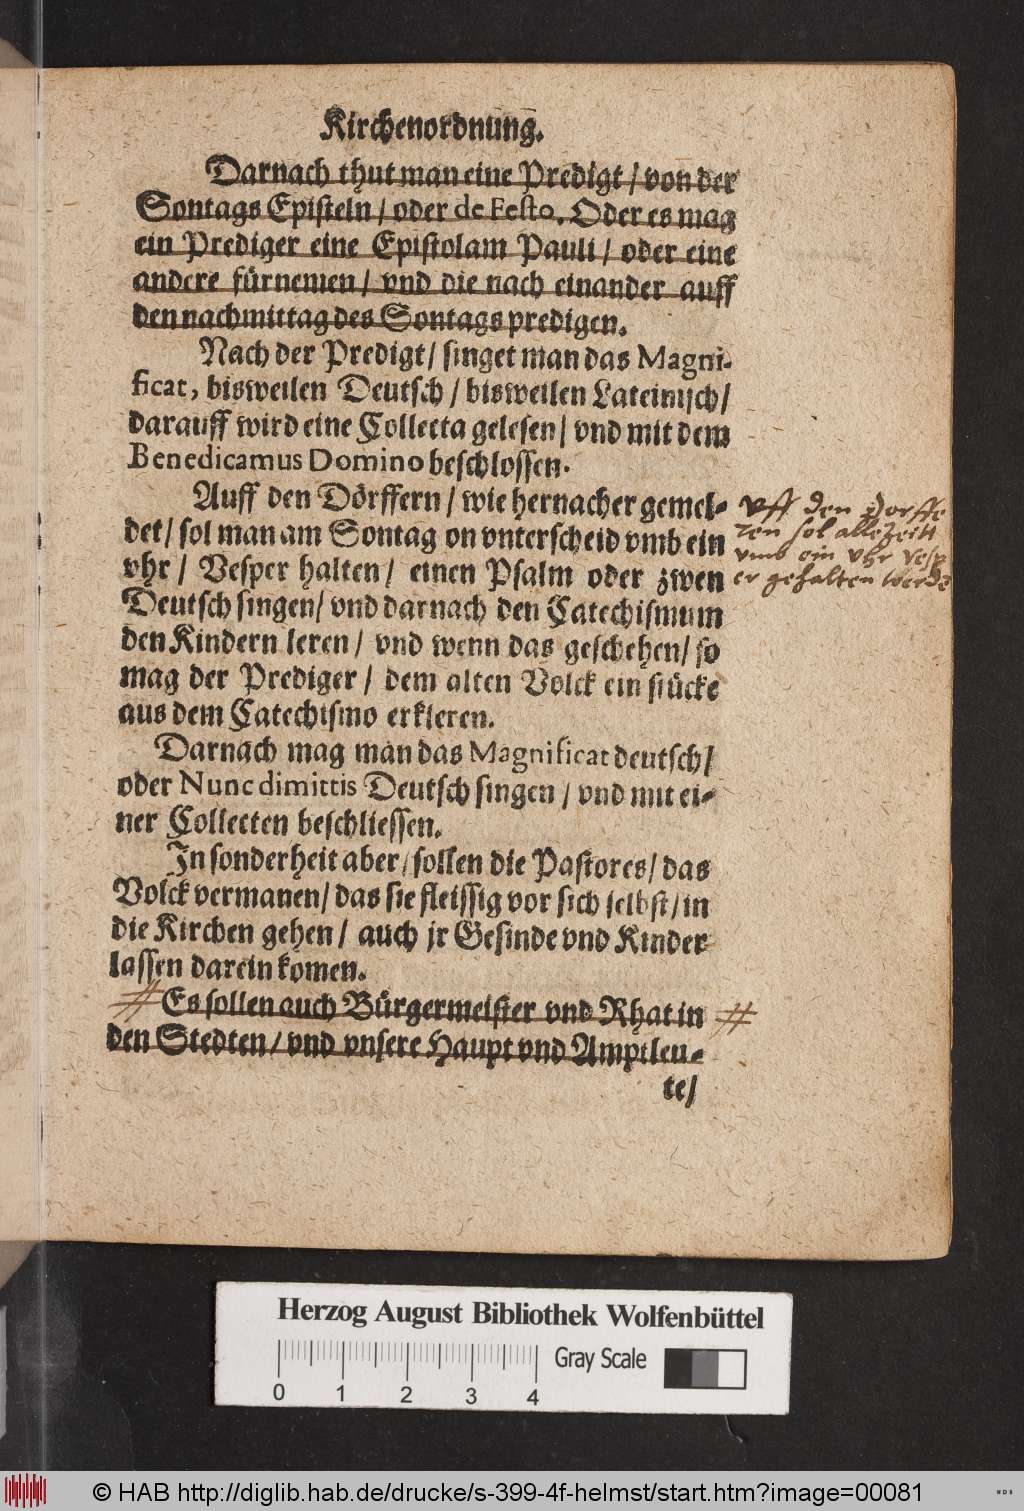 Kirchenordnung.
Darnach thut man eine Predigt / von der
Sontags Episteln / oder de Festo. Oder es mag
ein Prediger eine Epistolam Pauli / oder eine
andere fürnemen / vnd die nach einander auff
den nachmittag des Sontags predigen.
Nach der Predigt / singet man das Magni-
ficat, bisweilen Deutsch / bisweilen Lateinisch /
darauff wird eine Collecta gelesen / vnd mit dem
Benedicamus Domino beschlossen.
Auff den Dörffern / wie hernacher gemel-
det / sol man am Sontag on vnterscheid vmb ein
vhr / Vesper halten / einen Psalm oder zwen
Deutsch singen / vnd darnach den Catechismum
den Kindern leren / vnd wenn das geschehen / so
mag der Prediger / dem alten Volck ein stücke
aus dem Catechismo erkleren.
Darnach mag man das Magnificat deutsch /
oder Nunc dimittis Deutsch singen / vnd mit ei-
ner Collecten beschliessen.
In sonderheit aber / sollen die Pastores / das
Volck vermanen / das sie fleissig vor sich selbst / in
die Kirchen gehen / auch jr Gesinde vnd Kinder
lassen darein komen.
# Es sollen auch Bürgermeister vnd Rhat in #
den Stedten / vnd vnsere Haupt vnd Amptleu-
te /
vff den Dorffe
ren sol alle Zeitt
vmb ein vhr Vesp
er gehalten werde
Herzog August Bibliothek Wolfenbüttel
Gray Scale
0 1 2 3 4
© HAB http://diglib.hab.de/drucke/s-399-4f-helmst/start.htm?image=00081
WDB